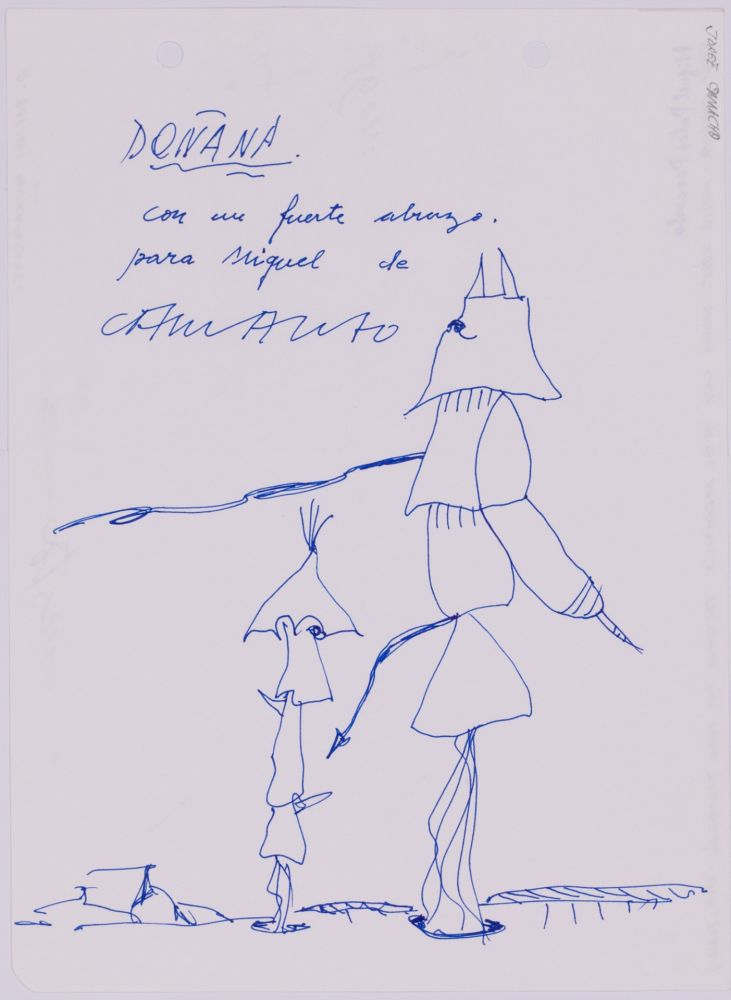 DOÑANA.
con un fuerte abrazo.
para Miguel de
CAMACHO
JORGE CAMACHO